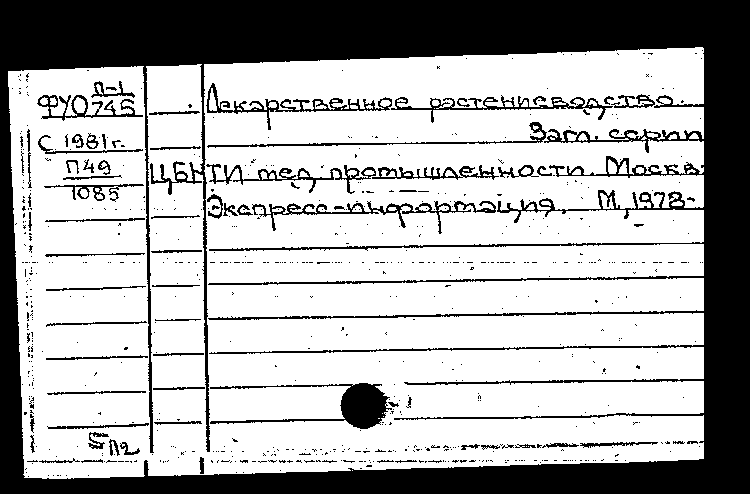 П-1
ФУО745
Лекарственное растениеводство.
С 1981г.
Заг. серии
П49
1085
ЦБНТИ мед. промышленности. Москва
Экспресс-информация. М, 1978-
5
П2